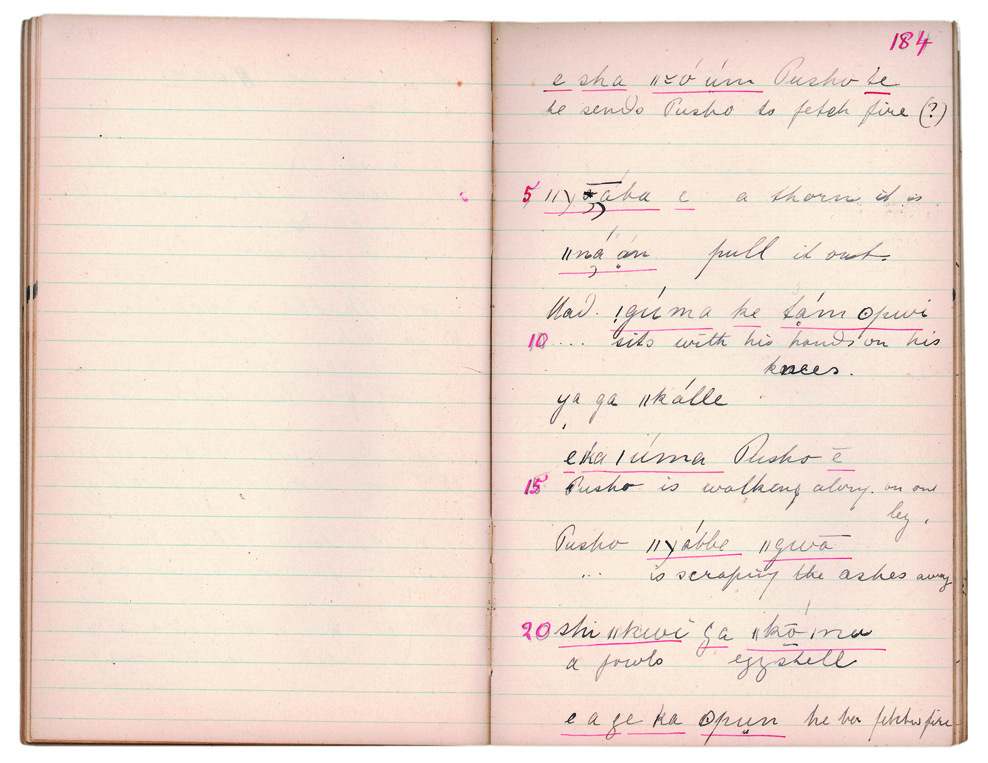 184
e sha ǁzóúm Pusho te
he sends Pusho to fetch fire (?)
5 ába e a thorn it is
ǁná án pull it out.
Mad. !gúma ke tám ʘpwi
10 .... sits with his hands on his
knees.
ya ga ǁkálle
e ka ǀúma Pusho ē
15 Pusho is walking along on one
leg.
Pusho ǁyábbe ǁgwā
... is scraping the ashes away
20 shi ǁkwi ga ǁkō´ma
a fowls eggshell
e a ge ka ʘpun he fetches fire